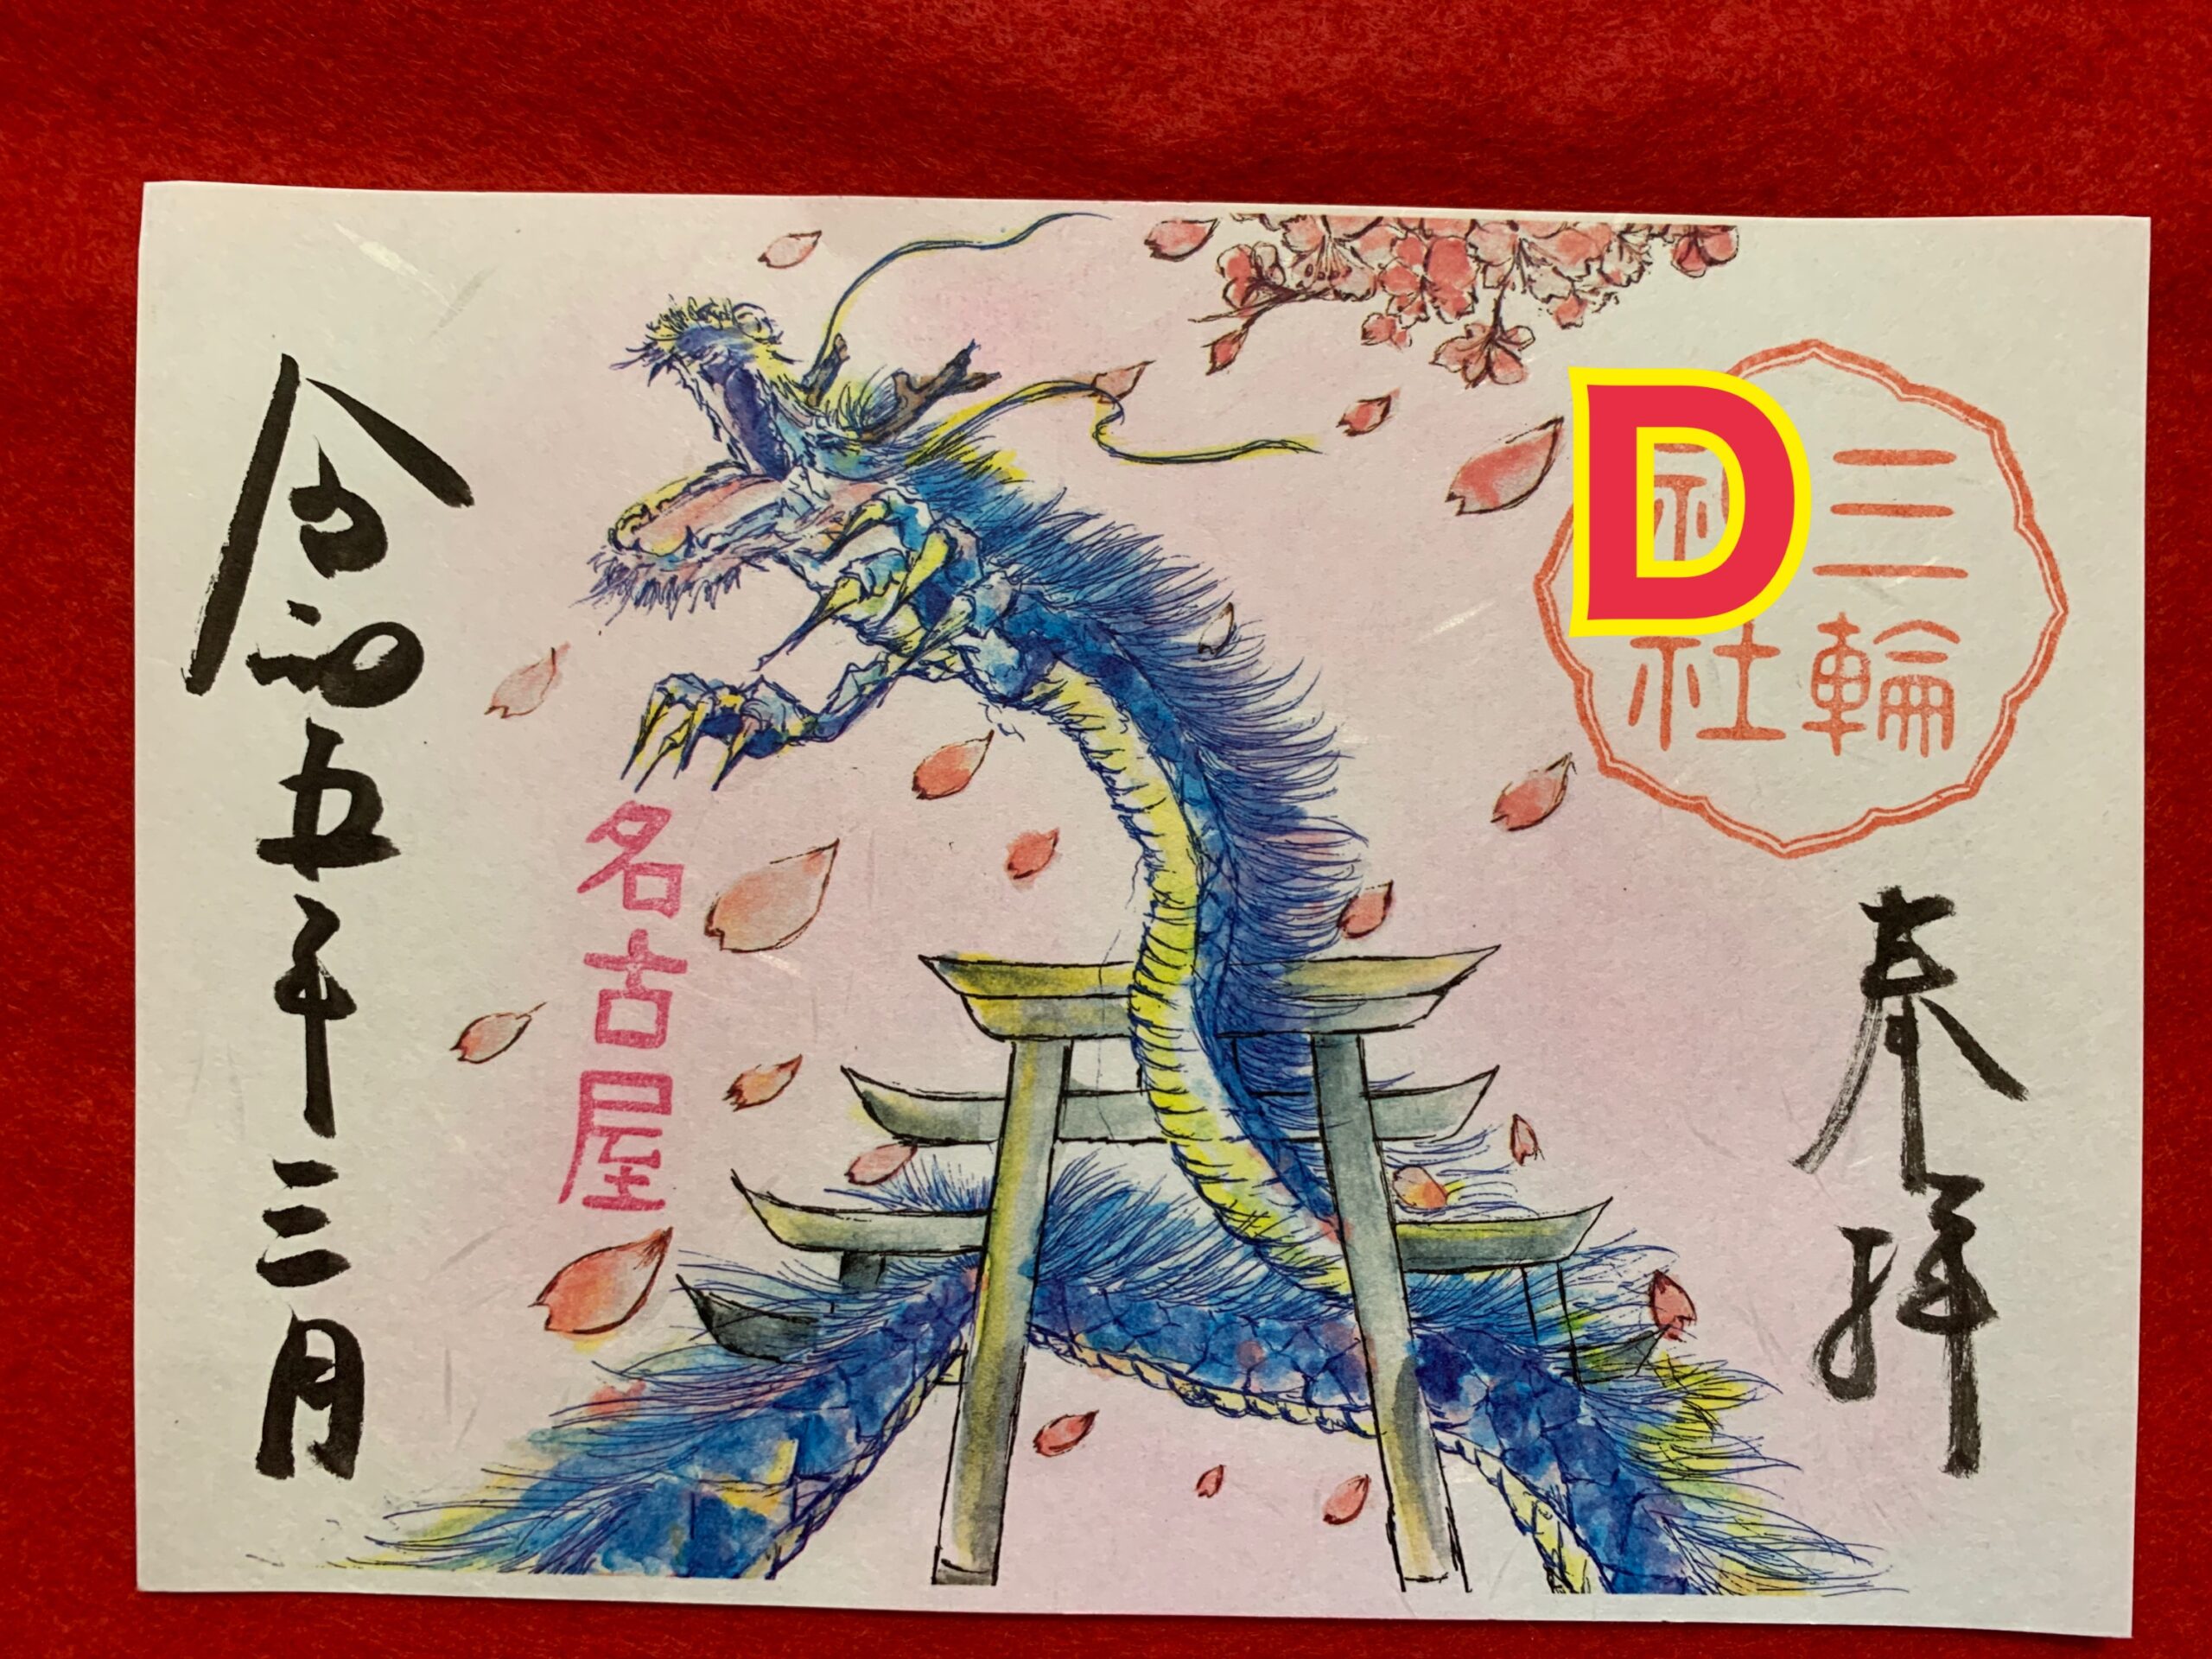 三輪
神社
D
奉拝
名古屋
令和五年三月